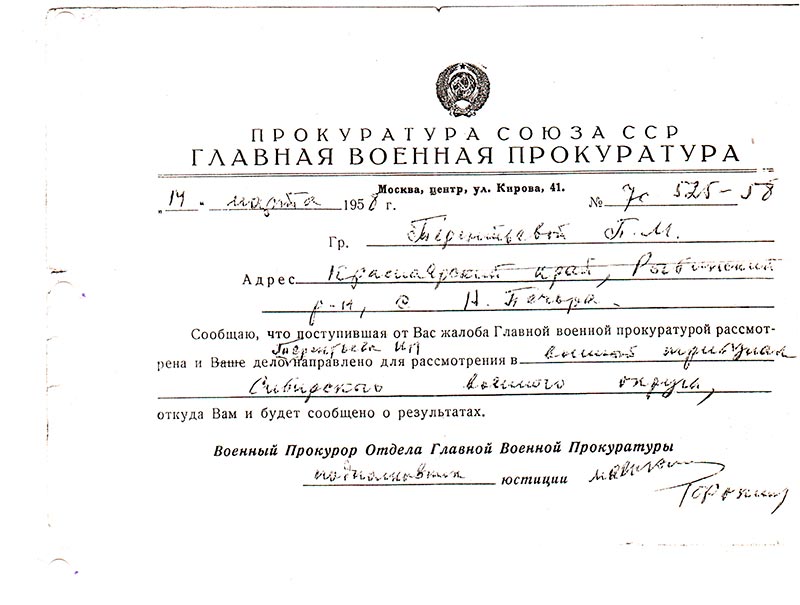 ПРОКУРАТУРА СОЮЗА ССР
ГЛАВНАЯ ВОЕННАЯ ПРОКУРАТУРА
Москва, центр, ул. Кирова, 41.
„14" марта 1958 г. № 7с 525-58
Гр. Терентьевой П.М.
Адрес Красноярский край, Рыбинский
р-н, с Н. Печора.
Сообщаю, что поступившая от Вас жалоба Главной военной прокуратурой рассмот-
Терентьева ИП
рена и Ваше дело направлено для рассмотрения в военный трибунал
Сибирского военного округа,
откуда Вам и будет сообщено о результатах.
Военный Прокурор Отдела Главной Военной Прокуратуры
подполковник юстиции